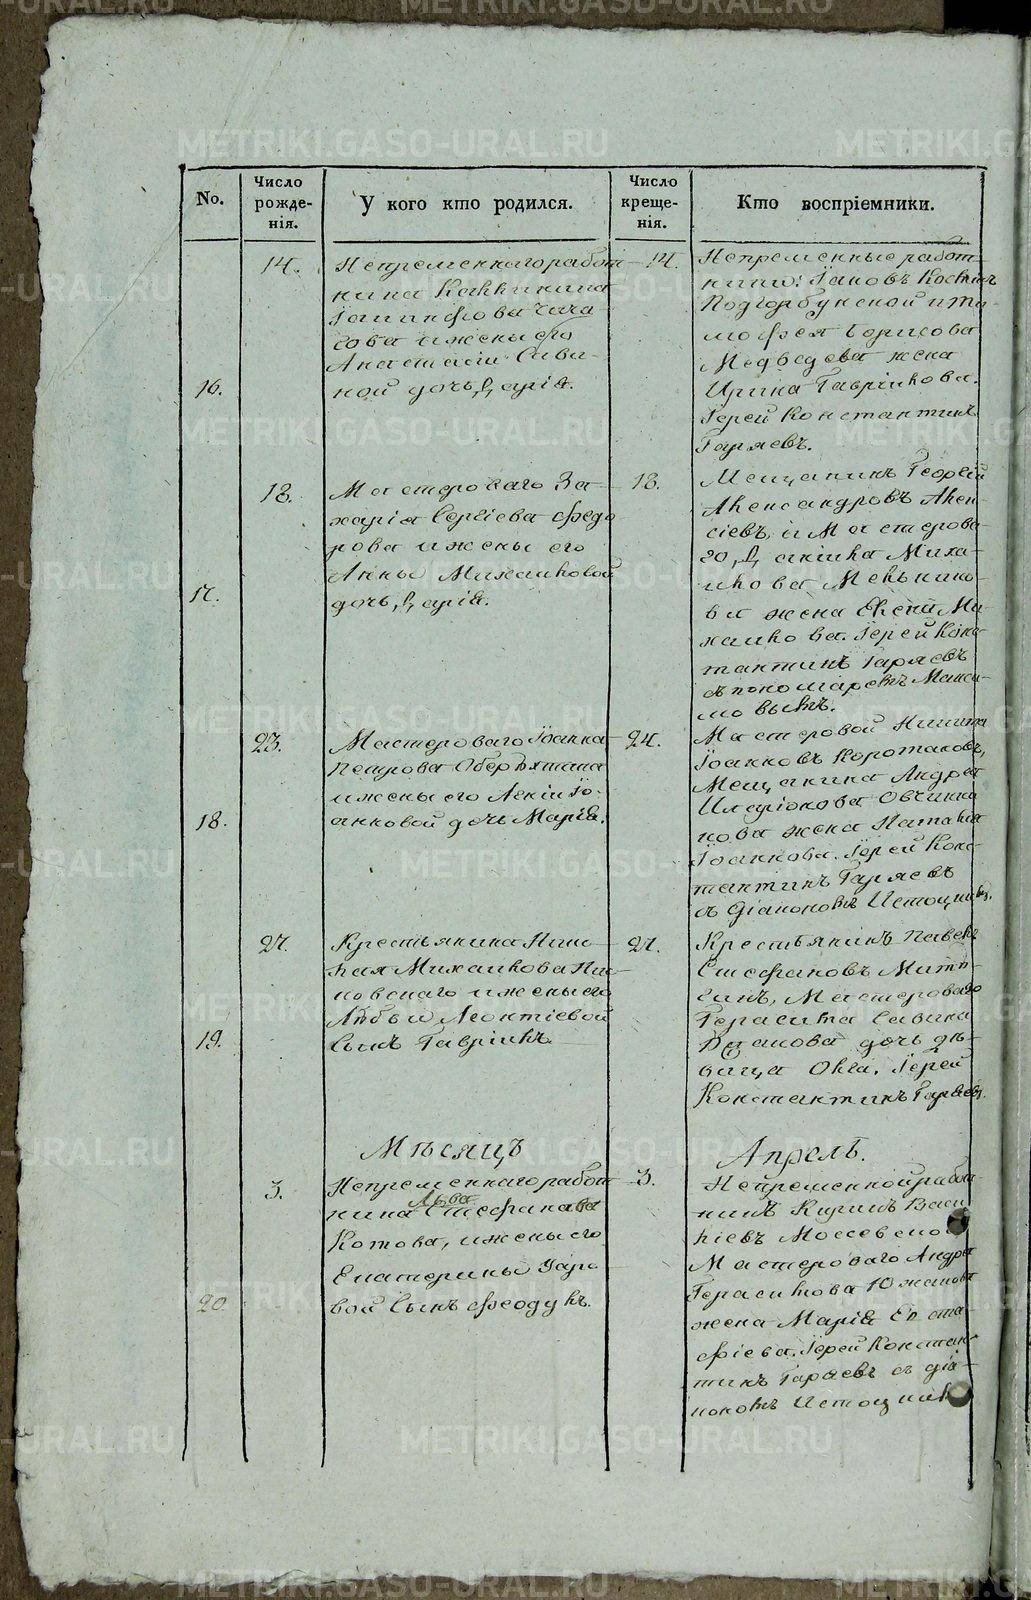 METRIKI.GASO-URAL.RU
No.
Число рожденія.
У кого кто родился.
Число крещенія.
Кто воспріемники.
16.
14.
Непременнаго работ-
ника
ва и жены его
Анастасіи Сави-
ной дочь Дарія.
14.
Непременные работ-
ники: Іаковъ
Подгорбунской и Ти-
мофея Борисова
Медведева жена
Ирина Гаврилова.
Іерей Константинъ
Гаряевъ.
17.
18.
Мастероваго За-
харія Сергіева Федо-
рова и жены его
Анны Михаиловой
дочь Дарія.
18.
Мещанинъ Георгій
Александровъ Алек-
сіевъ, и Мастерова-
го, Данила Миха-
илова Мельнико-
ва жена
хаилова. Іерей Конс-
тантинъ Гаряевъ
съ пономаремъ Макси-
мовымъ.
18.
23.
Мастероваго Іоанна
Петрова Оберюхтина
и жены его Іо-
анновой дочь Марія.
24.
Мастеровой Никита
Іоанновъ Коротаковъ,
Мещанина Андрея
Иларіонова Овчинни-
кова жена Наталія
Іоаннова. Іерей Конс-
тантинъ Гаряевъ
съ діакономъ Истоцни
19.
27.
Крестьянина Нико-
лая Михаилова
новскаго и жены его
Любви Леонтіевой
Сынъ Гавріилъ.
27.
Крестьянинъ Павелъ
Стефановъ
Мастероваго
Герасима Савина
дочь дѣ-
вица Іерей
Константинъ Гаряевъ.
Мѣсяцъ Апрель.
20.
3.
Непременнаго работ-
ника Льва Стефанова
Котова, и жены его
Екатерины
вой Сынъ Феодулъ.
3.
Непременной работ-
никъ Кирилъ Васи-
ліевъ
Мастероваго Андрея
Герасимова Южакова
жена Марія Евста-
фіева. Іерей Констан-
тинъ Гаряевъ съ діа-
кономъ